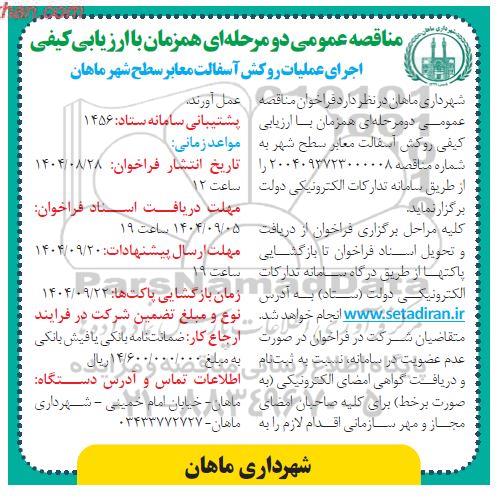 khan.com
مناقصه عمومی دو مرحله‌ای همزمان با ارزیابی کیفی
اجرای عملیات روکش آسفالت معابر سطح شهر ماهان
شهرداری ماهان در نظر دارد فراخوان مناقصه
عمومی دومرحله‌ای همزمان با ارزیابی
کیفی روکش آسفالت معابر سطح شهر به
شماره مناقصه ۲۰۰۴۰۹۳۷۲۳۰۰۰۰۰۸ را
از طریق سامانه تدارکات الکترونیکی دولت
برگزار نماید.
کلیه مراحل برگزاری فراخوان از دریافت
و تحویل اسناد فراخوان تا بازگشایی
پاکتها از طریق درگاه سامانه تدارکات
الکترونیکی دولت (ستاد) به آدرس
www.setadiran.ir انجام خواهد شد.
متقاضیان شرکت در فراخوان در صورت
عدم عضویت در سامانه، نسبت به ثبت‌نام
و دریافت گواهی امضای الکترونیکی (به
صورت برخط) برای کلیه صاحبان امضای
مجاز و مهر سازمانی اقدام لازم را به
عمل آورند.
پشتیبانی سامانه ستاد: ۱۴۵۶
مواعد زمانی:
تاریخ انتشار فراخوان: ۱۴۰۴/۰۸/۲۸
ساعت ۱۲
مهلت دریافت اسناد فراخوان:
۱۴۰۴/۰۹/۰۵ ساعت ۱۹
مهلت ارسال پیشنهادات: ۱۴۰۴/۰۹/۲۰
ساعت ۱۹
زمان بازگشایی پاکت‌ها: ۱۴۰۴/۰۹/۲۲
نوع و مبلغ تضمین شرکت در فرایند
ارجاع کار: ضمانت‌نامه بانکی یا فیش بانکی
به مبلغ ۱۴/۶۰۰/۰۰۰/۰۰۰ ریال
اطلاعات تماس و آدرس دستگاه:
ماهان- خیابان امام خمینی – شهرداری
ماهان- ۰۳۴۳۳۷۷۲۷۲۷
شهرداری ماهان
ParsNamadData